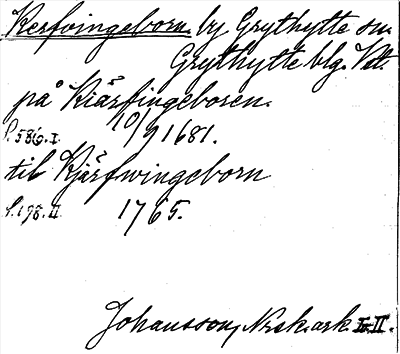 Kerfvingeborn. by Grythytte sn.
Grythytte blg. Vstl.
på Kiärfingeboren.
S. 586. I. 10/9 1681.
til Kjärfwingeborn
S. 198. II. 1765.
Johansson, N:sk. ark. I. II.